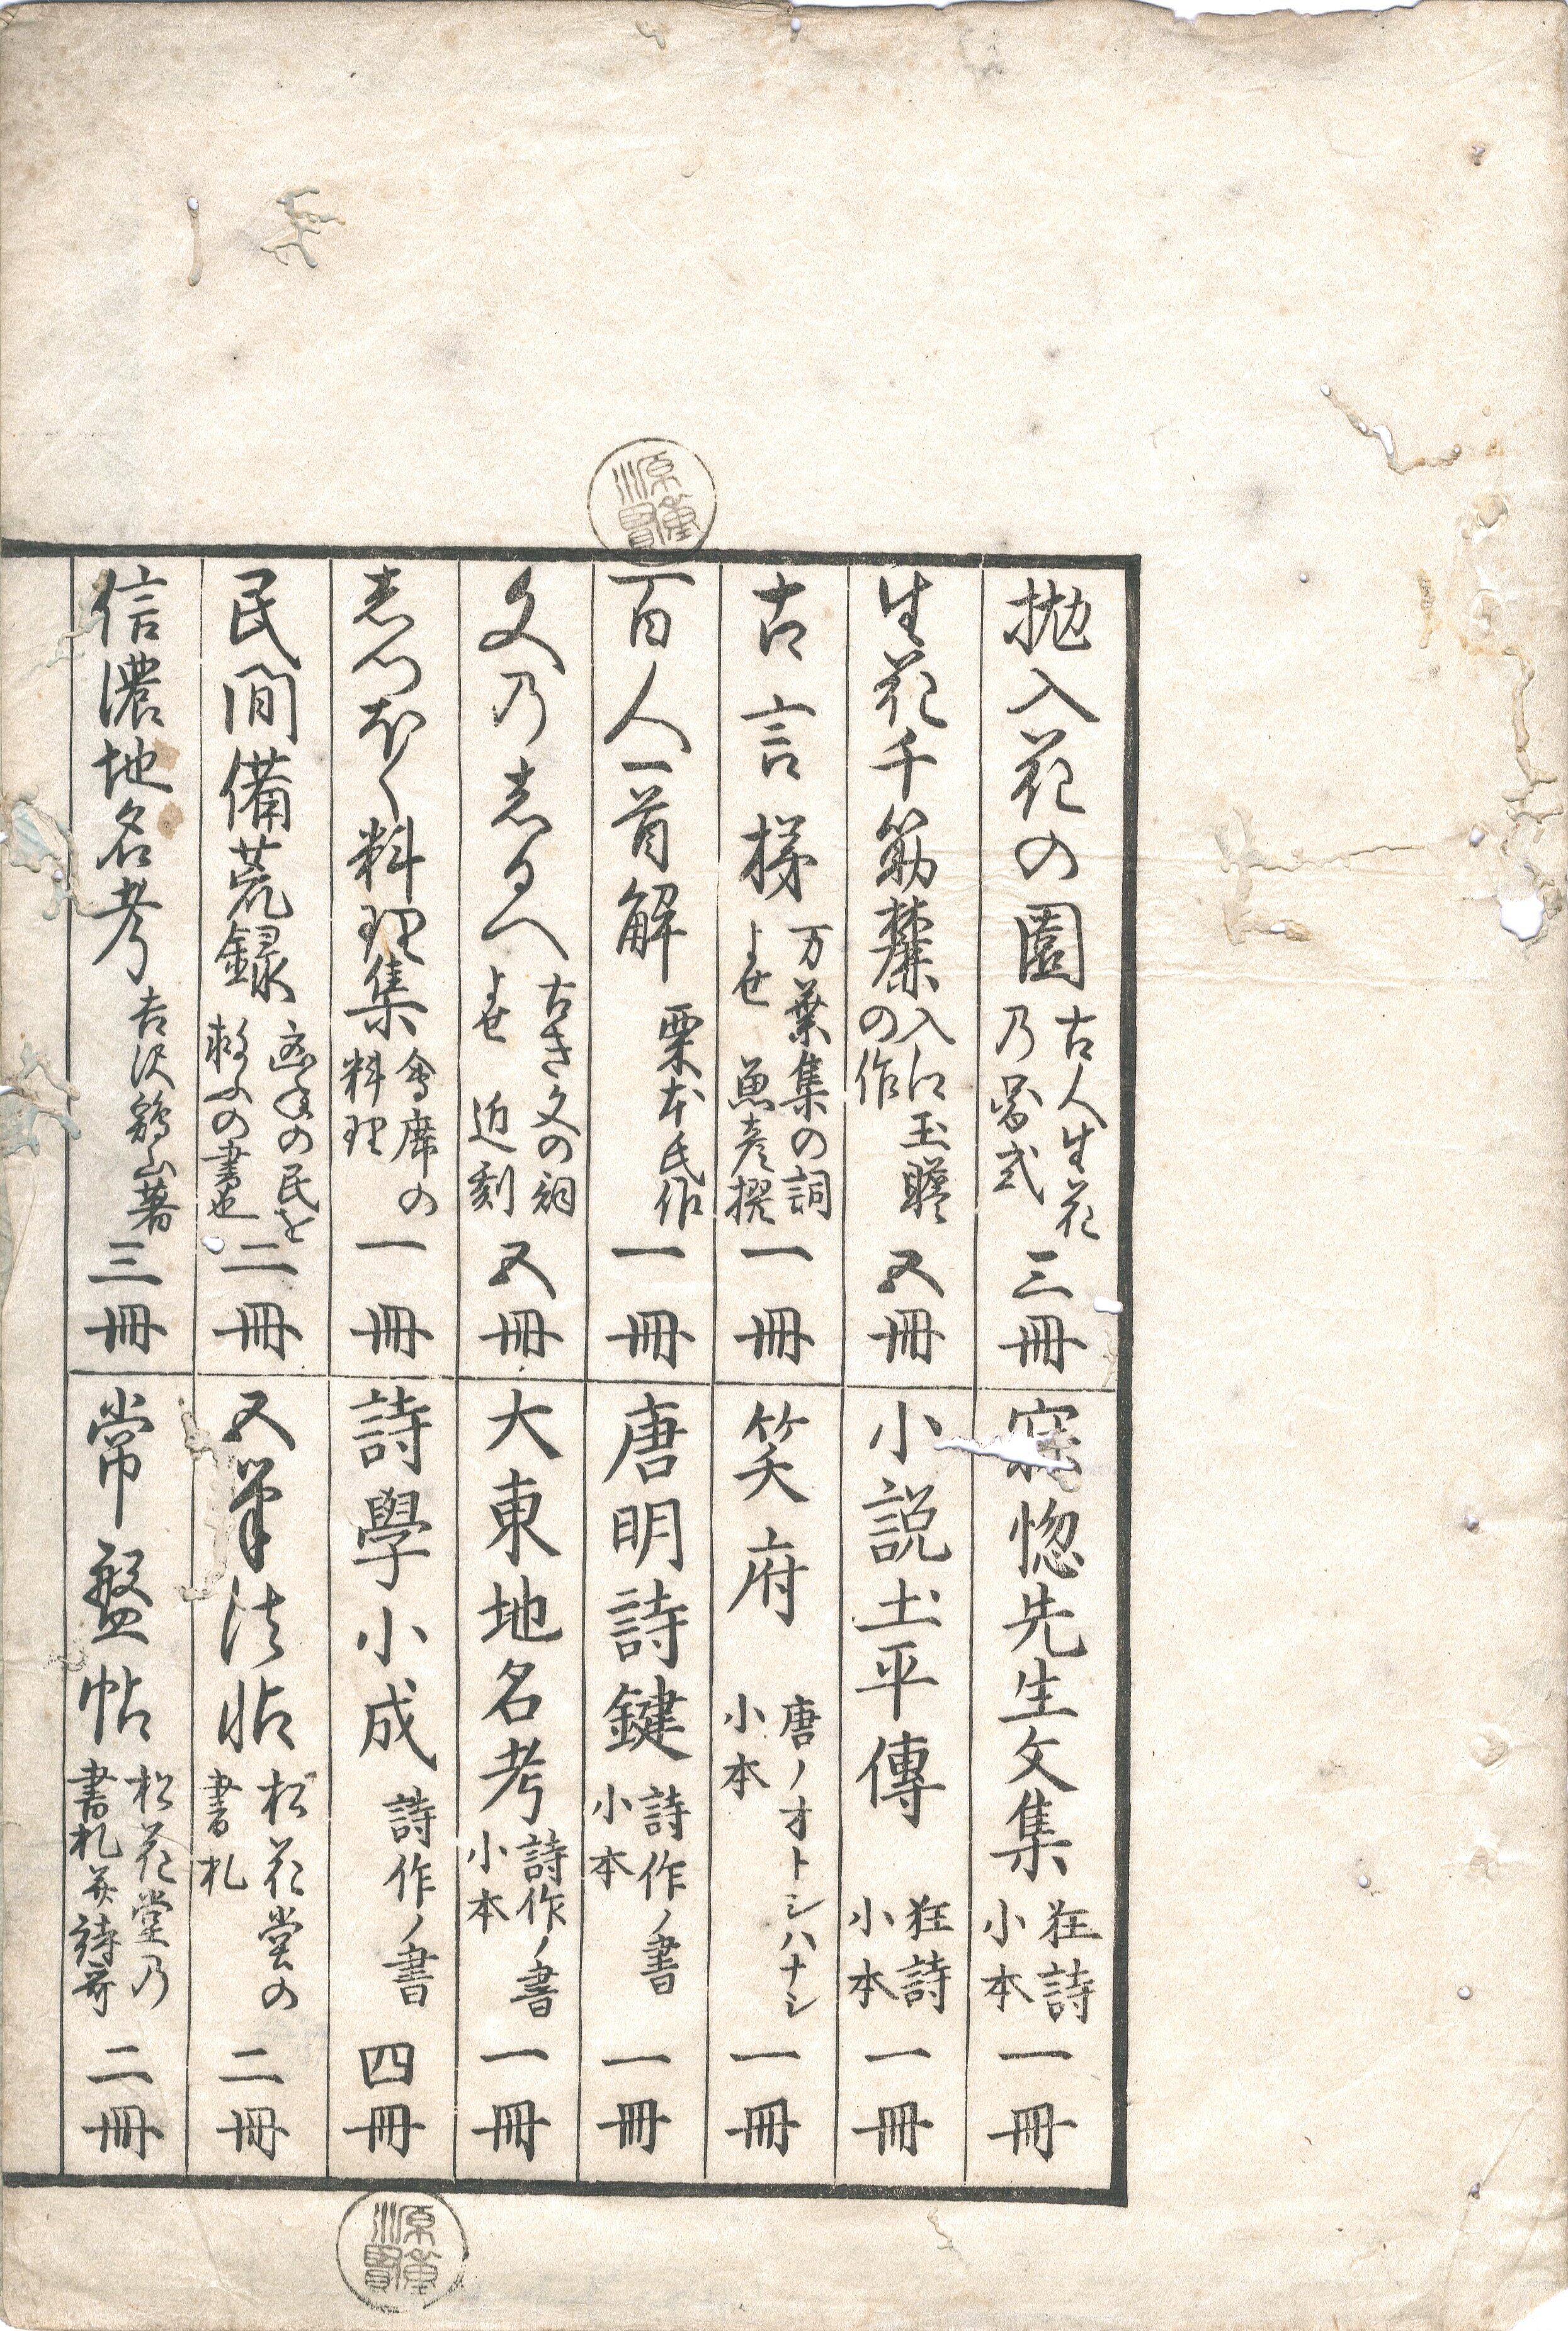 抛入花の園 古人生花乃図式 三冊
生花千筋簾 入江玉蟾の作 五冊
古言梯 万葉集の詞よせ 魚彦撰 一冊
百人一首解 栗本氏作 一冊
文乃志るへ 古き文の詞よせ 近刻 五冊
志つほく料理集 會席の料理 一冊
民間備荒録 凶年の民を救ふの書也 二冊
信濃地名考 吉沢鷄山著 三冊
寐惚先生文集 狂詩小本 一冊
小説土平傳 狂詩小本 一冊
笑府 唐ノオトシハナシ小本 一冊
唐明詩鍵 詩作ノ書小本 一冊
大東地名考 詩作ノ書小本 一冊
詩學小成 詩作ノ書 四冊
又筆法帖 松花堂の書札 二冊
常盤帖 松花堂乃書札并詩哥 二冊